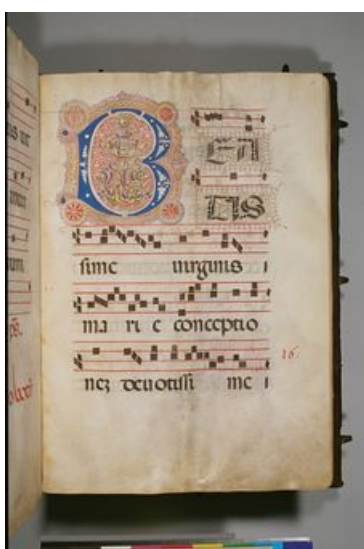 BEA
TIS
sime virginis
ma ri e conceptio
nez devotissi me i
16.